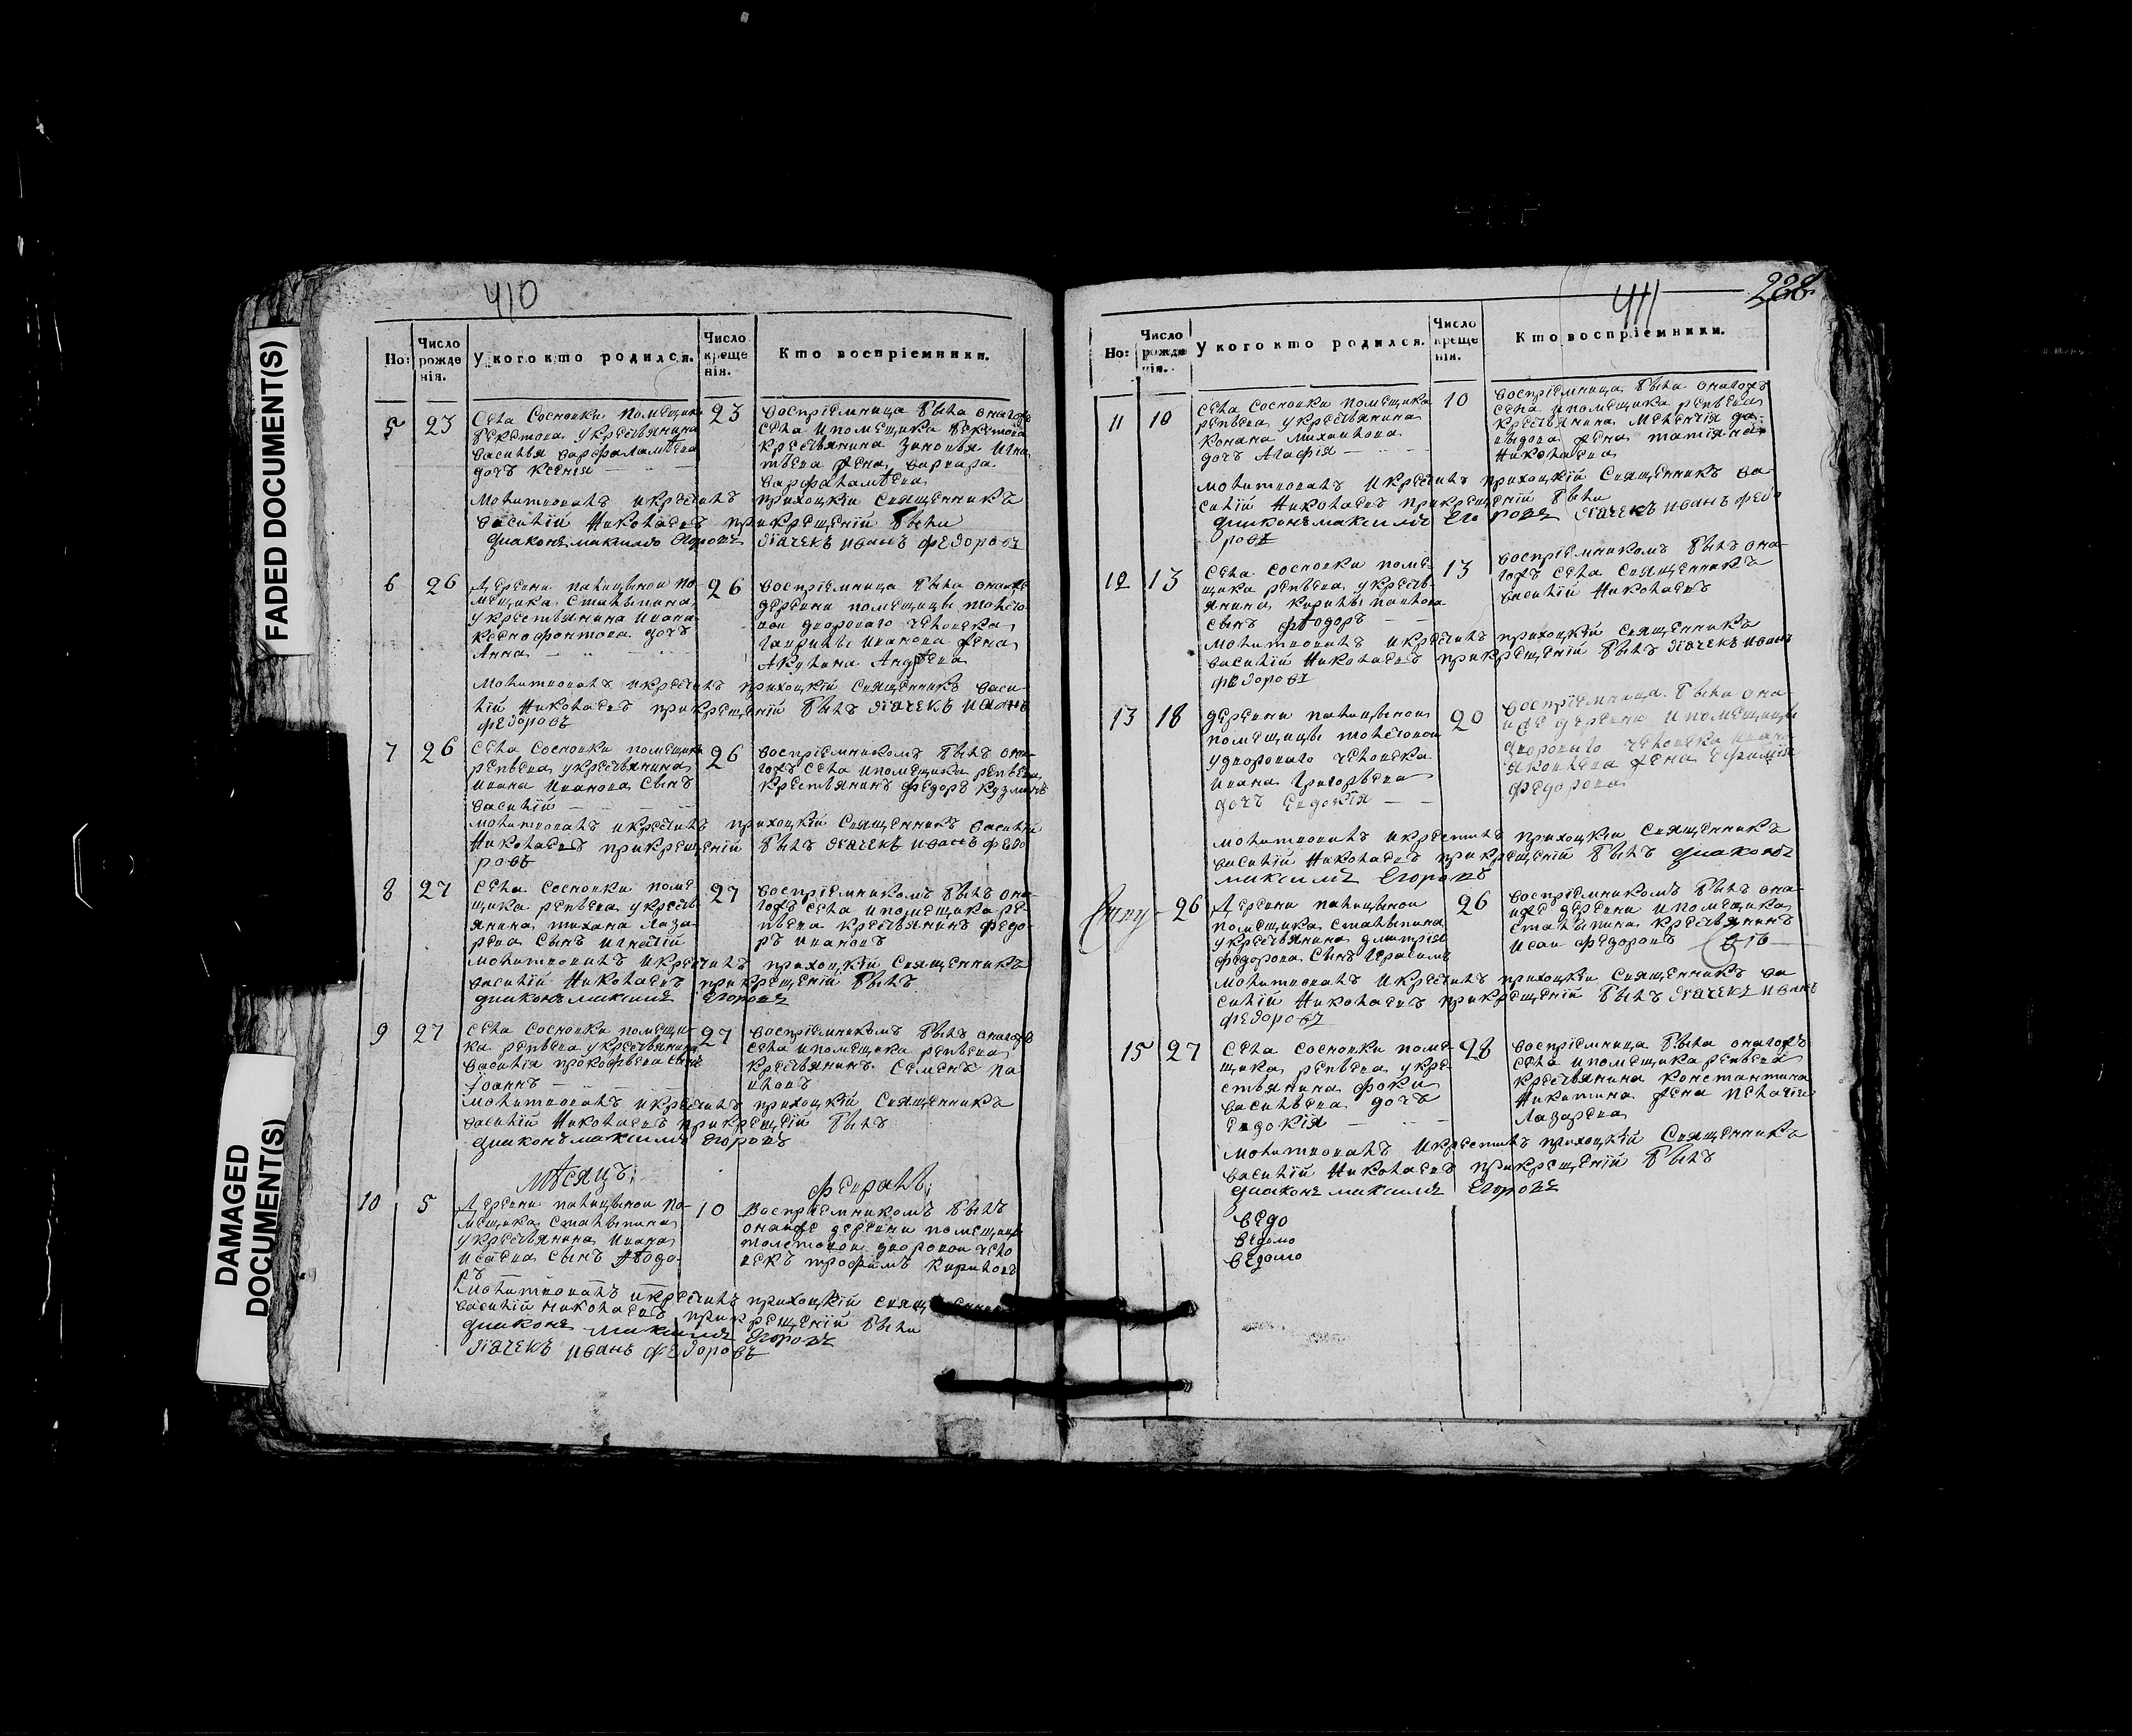 FADED DOCUMENT(S)
DAMAGED
DOCUMENT(S)
410
Но:
Число
рожде
нія.
У кого кто родился.
Число
креще
нія.
Кто воспріемники.
5 23
Села Сосновки помещика
бекетова укрестьянина
василья варфаламѣева
дочь Ксенія
23
воспріемница была оногожъ
села ипомещика бекетова
крестьянина зиновья Игна
тьева жена варвара
варфаламѣева
молитвовалъ икрестилъ приходкій Священникъ
василій Николаевъ прикрещеній были
диаконъ максимъ Егоровъ дїачекъ иванъ федоровъ
6 26
Деревни палицыной по-
мещика Сталыпина
укрестьянина ивана
Ксенофонтова дочь
Анна
26
воспріемница была онойже
деревни помещицы толсто
вой двороваго человека
гаврилы иванова жена
Акулина Андрѣева
молитвовалъ икрестилъ приходкій Священникъ васи-
лій Николаевъ прикрещеній былъ дїачекъ иванъ
федоровъ
7 26
Села Сосновки помещика
репьева укрестьянина
ивана иванова Сынъ
василій
26
воспріемникомъ былъ оно-
гожъ села ипомещика репьева
крестьянинъ федоръ кузминъ
молитвовалъ икрестилъ приходкій Священникъ василій
Николаевъ прикрещеній былъ дїачекъ иванъ федо
ровъ
8 27
Села Сосновки поме
щика репьева укресть
янина тихана Лаза
рева Сынъ игнатій
27
воспріемникомъ былъ оно-
гожъ села ипомещика ре-
пьева крестьянинъ федо-
ръ ивановъ
молитвовалъ икрестилъ приходкій Священникъ
василій Николаевъ прикрещеній былъ
диаконъ максимъ Егоровъ
9 27
Села Сосновки помещи-
ка репьева укрестьянина
василія прокофьева сынъ
іоаннъ
27
воспріемникомъ былъ оногожъ
села ипомещика репьева
крестьянинъ Семенъ па
вловъ
молитвовалъ икрестилъ приходкій Священникъ
василій Николаевъ прикрещеній былъ
диаконъ максимъ Егоровъ
Мѣсяцъ; февраль;
10 5
Деревни палицыной по-
мещика Сталыпина
укрестьянина ивана
исаева сынъ Ѳеодо-
ръ
10
Воспріемникомъ былъ
онойже деревни помещицы
толстовой дворовой чело
векъ трофимъ кириловъ
Молитвовалъ икрестилъ приходкій священникъ
василій николаевъ прикрещеній были
диаконъ максимъ Егоровъ
дїачекъ иванъ федоровъ
411
288
Но:
Число
рожде
нія.
У кого кто родился.
Число
креще
нія.
Кто воспріемники.
11 10
Села Сосновки помещика
репьева укрестьянина
Конана михаилова
дочь Агафія
10
воспріемница была оногожъ
села ипомещика репьева
крестьянина Мелентія да-
выдова жена татіяна
Николаева
молитвовалъ икрестилъ приходкій Священникъ ва-
силій Николаевъ прикрещеній были
диаконъ максимъ Егоровъ дїачекъ иванъ федо
ровъ
12 13
Села Сосновки поме
щика репьева укресть-
янина кирилы павлова
сынъ феодоръ
13
воспріемникомъ былъ оно-
гожъ села Священникъ
василій Николаевъ
молитвовалъ икрестилъ приходкій Священникъ
василій Николаевъ прикрещеній былъ дїачекъ иванъ
федоровъ
13 18
деревни палицыной
помещицы толстовой
удвороваго человека
ивана григорьева
дочь Евдокія
20
воспріемница была оно-
йже деревни ипомещицы
двороваго человека ивана
яковлева жена Ефимія
федорова
молитвовалъ икрестилъ приходкій Священникъ
василій Николаевъ прикрещеній былъ диаконъ
максимъ Егоровъ
26
Деревни палицыной
помещика Сталыпина
укрестьянина дмитрія
федорова Сынъ Герасимъ
26
воспріемникомъ былъ оно-
йже деревни ипомещика
сталыпина крестьянинъ
исаи федоровъ
молитвовалъ икрестилъ приходкій Священникъ ва
силій Николаевъ прикрещеній былъ дїачекъ иванъ
федоровъ
15 27
Села Сосновки поме-
щика репьева укре
стьянина фоки
васильева дочь
Евдокія
28
воспріемница была оногожъ
села ипомещика репьева
крестьянина константина
Никитина жена пелагія
Лазарева
молитвовалъ икрестилъ приходкій Священникъ
василій Николаевъ прикрещеній былъ
диаконъ максимъ Егоровъ
ведо
ведомо
ведомо